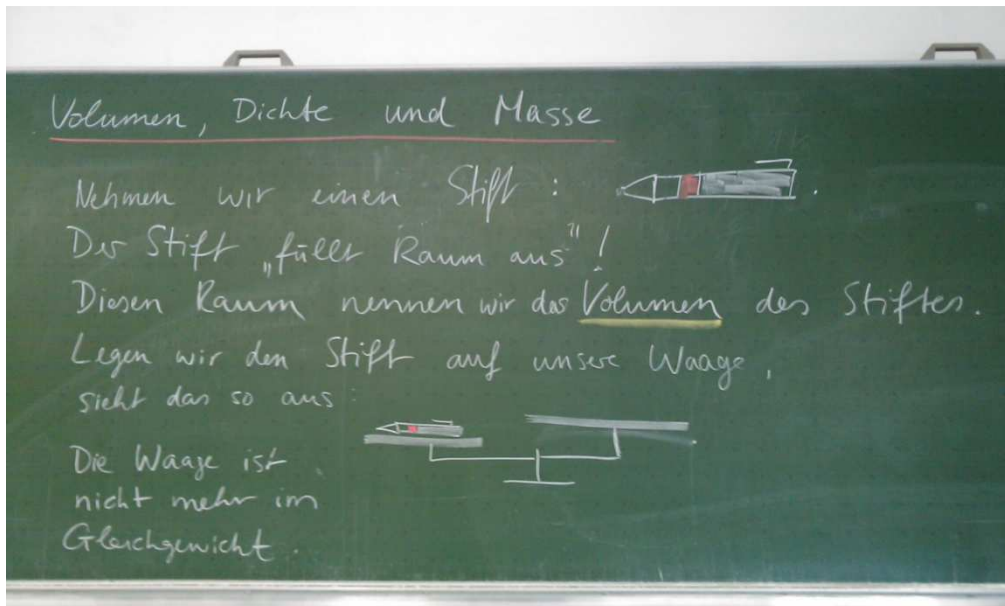 Volumen, Dichte und Masse
Nehmen wir einen Stift :
Der Stift „füllt Raum aus"!
Diesen Raum nennen wir das Volumen des Stiftes.
Legen wir den Stift auf unsere Waage,
sieht das so aus :
Die Waage ist
nicht mehr im
Gleichgewicht.